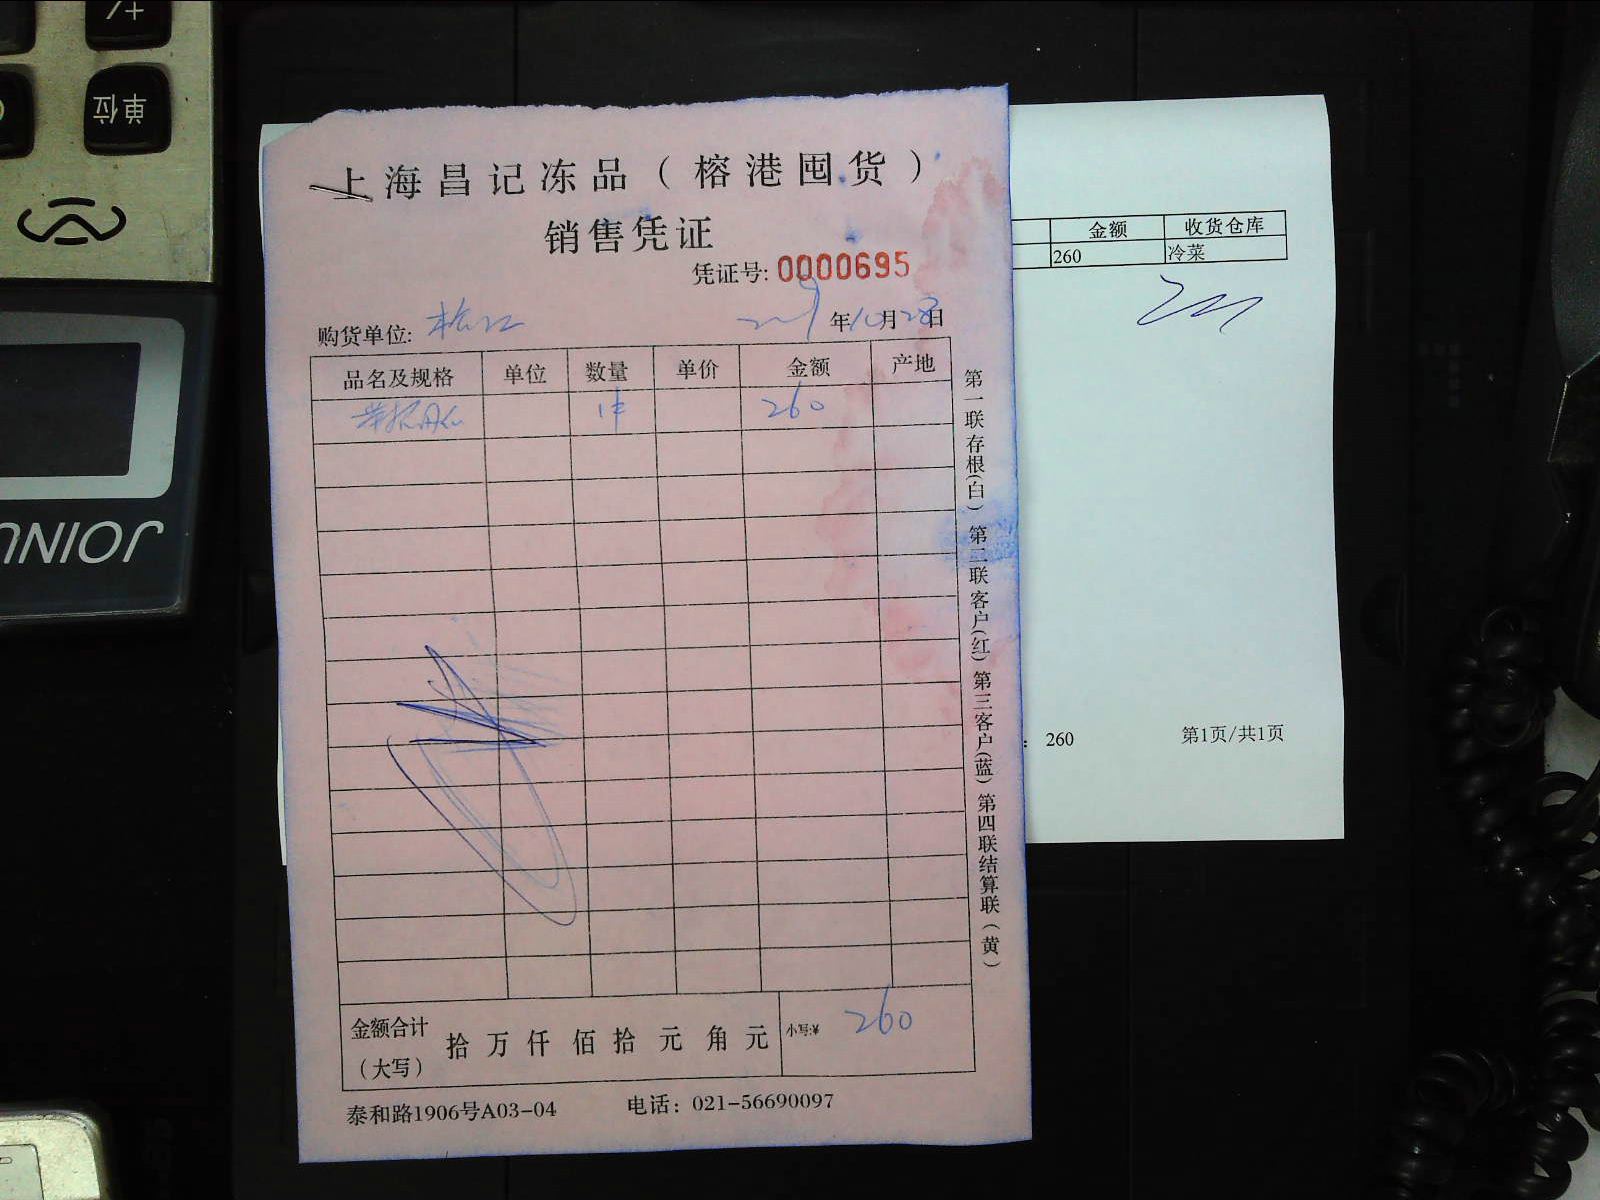 上海昌记冻品（榕港囤货）
销售凭证
凭证号: 0000695
购货单位:
年10月28日
品名及规格 单位 数量 单价 金额 产地
1件 260
金额合计（大写） 拾 万 仟 佰 拾 元 角 元 小写:¥ 260
泰和路1906号A03-04 电话：021-56690097
第一联存根(白) 第二联客户(红) 第三客户(蓝) 第四联结算联(黄)
金额 收货仓库
260 冷菜
: 260 第1页/共1页
单位
JOINU